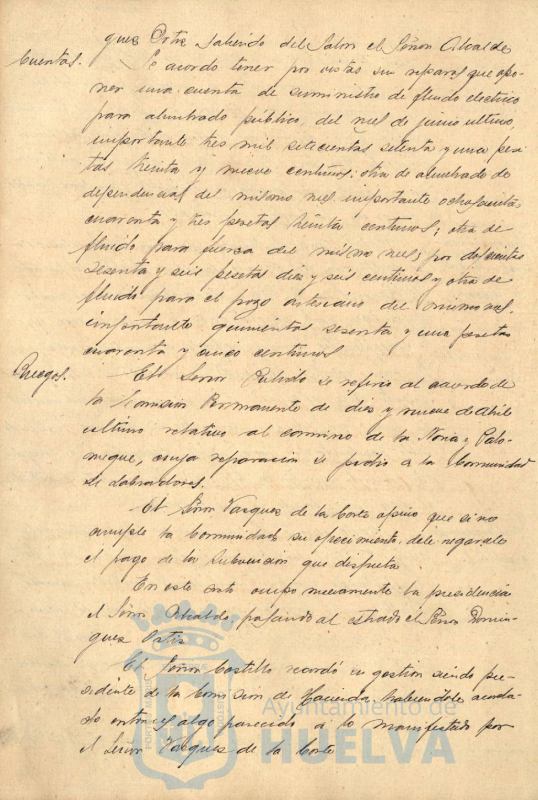 guez Ortiz saliendo del Salon el Señor Alcalde
Cuentas. Se acordo tener por vistas sin reparos que opo-
ner una cuenta de suministro de fluido electrico
para alumbrado público, del mes de junio ultimo,
importante tres mil setecientas setenta y una pese-
tas treinta y nueve centimos: otra de alumbrado de
dependencias del mismo mes importante ochocientas
cuarenta y tres pesetas treinta centimos; otra de
fluido para fuerza del mismo mes, por doscientas
sesenta y seis pesetas diez y seis centimos y otra de
fluido para el pozo artesiano del mismo mes,
importante quinientas sesenta y una pesetas
cuarenta y cinco centimos
Ruegos. El Señor Pulido se refirio al acuerdo de
la Comision Permanente de diez y nueve de Abril
ultimo relativo al camino de la Noria y Palo-
meque, cuya reparación se pidio a la Comunidad
de Labradores.
El Señor Vazquez de la Corte opino que si no
cumple la Comunidad su ofrecimiento, debe negarsele
el pago de la subvencion que disfruta
En este acto ocupo nuevamente la presidencia
el Señor Alcalde, pasando al estrado el Señor Domin-
guez Ortiz
El Señor Castillo recordó su gestion siendo pre-
sidente de la Comision de Hacienda, habiendole
y algo parecido a lo manifestado por
el Señor Vazquez de la Corte
Ayuntamiento de
HUELVA